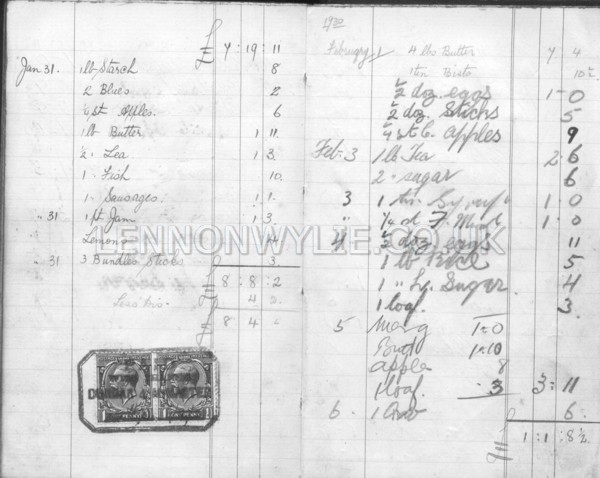 £ 7 : 19 : 11
Jan 31. 1 lb Starch 8
2 Blues 2
¼ st Apples. 6
1 lb Butter 1 11.
2 . Lea 1 3.
1 . Fish 10.
1 . Sausages. 1.
" 31 1 pt Jam 1 3.
Lemons
" 31 3 Bundles Sticks 3.
£ 8 : 8 : 2
Less Dis. 4
£ 8 4
1930
February 1 4 lbs Butter 7 4
1 tin Bisto 10½
½ doz eggs 1-0
½ doz. Sticks 5
¼ st C. Apples 9
Feb. 3 1 lb Tea 2.6
2 " sugar 6
3 1 tin Syrup 1-0
" 1-0
4 ½ doz eggs 11
1 lb 5
1 " Sugar 4
1 loaf. 3.
5 Marg 1=0
1=10
apple 8
1 loaf. 3 3= 11
6. 1 6.
£ 1 : 1 : 8½
LENNONWYLIE.CO.UK